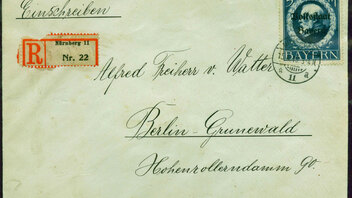 Einschreiben
Volksstaat
Bayern
BAYERN
R
Nürnberg 11
Nr. 22
Alfred Freiherr v. Watter
Berlin-Grunewald
Hohenzollerndamm 90.